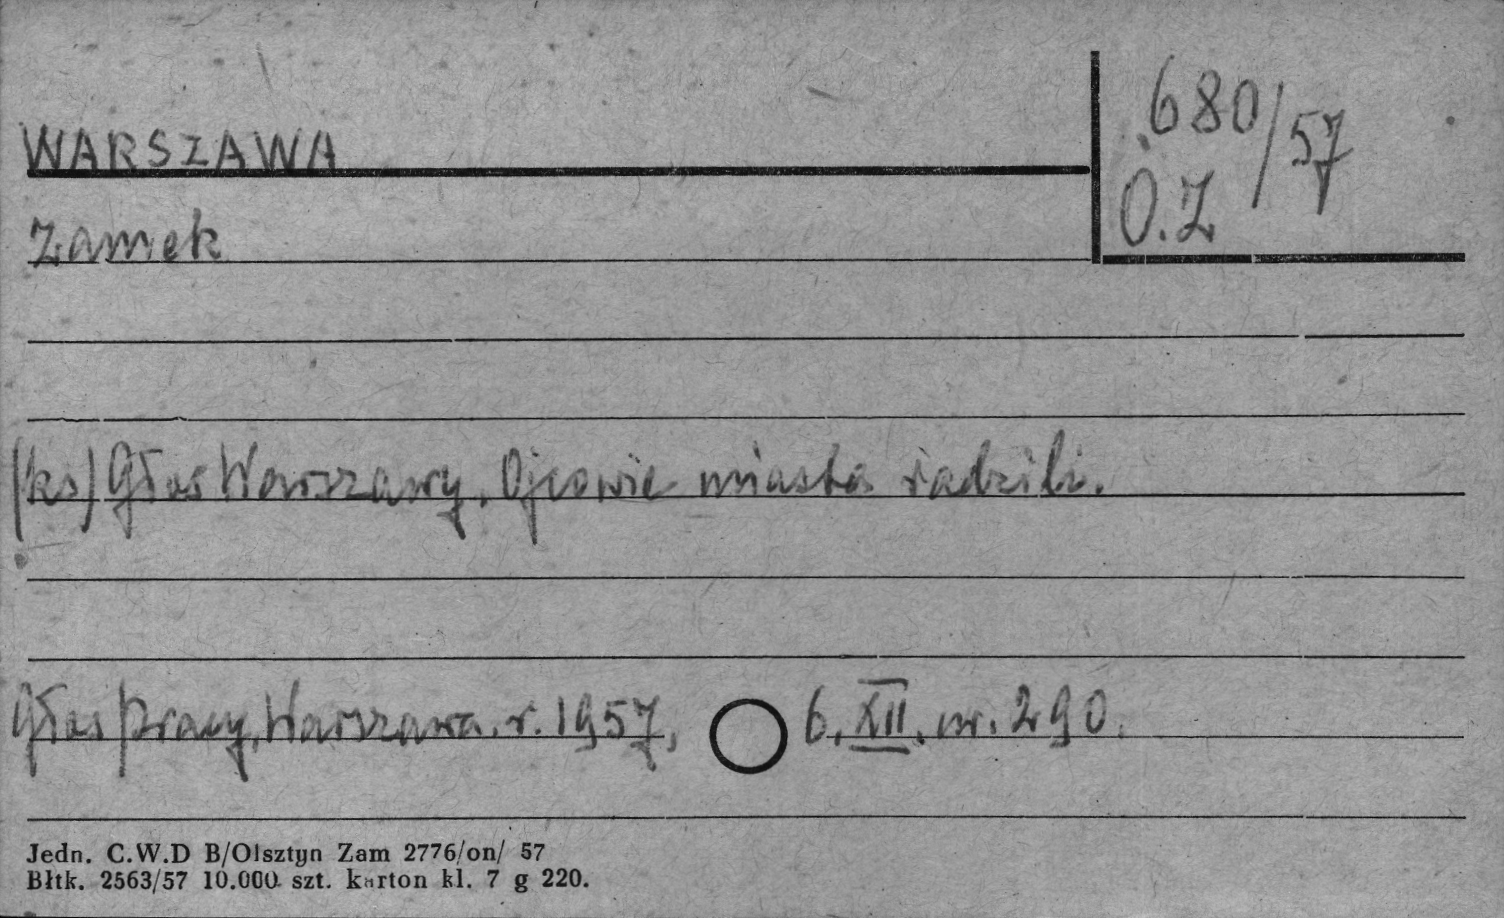 WARSZAWA
680/57
O.Z
Zamek
(ks) Głos Warszawy. Ojcowie miasta radzili.
Głos Pracy, Warszawa. r. 1957, 6. XII. nr. 290.
Jedn. C.W.D B/Olsztyn Zam 2776/on/ 57
Błtk. 2563/57 10.000 szt. karton kl. 7 g 220.